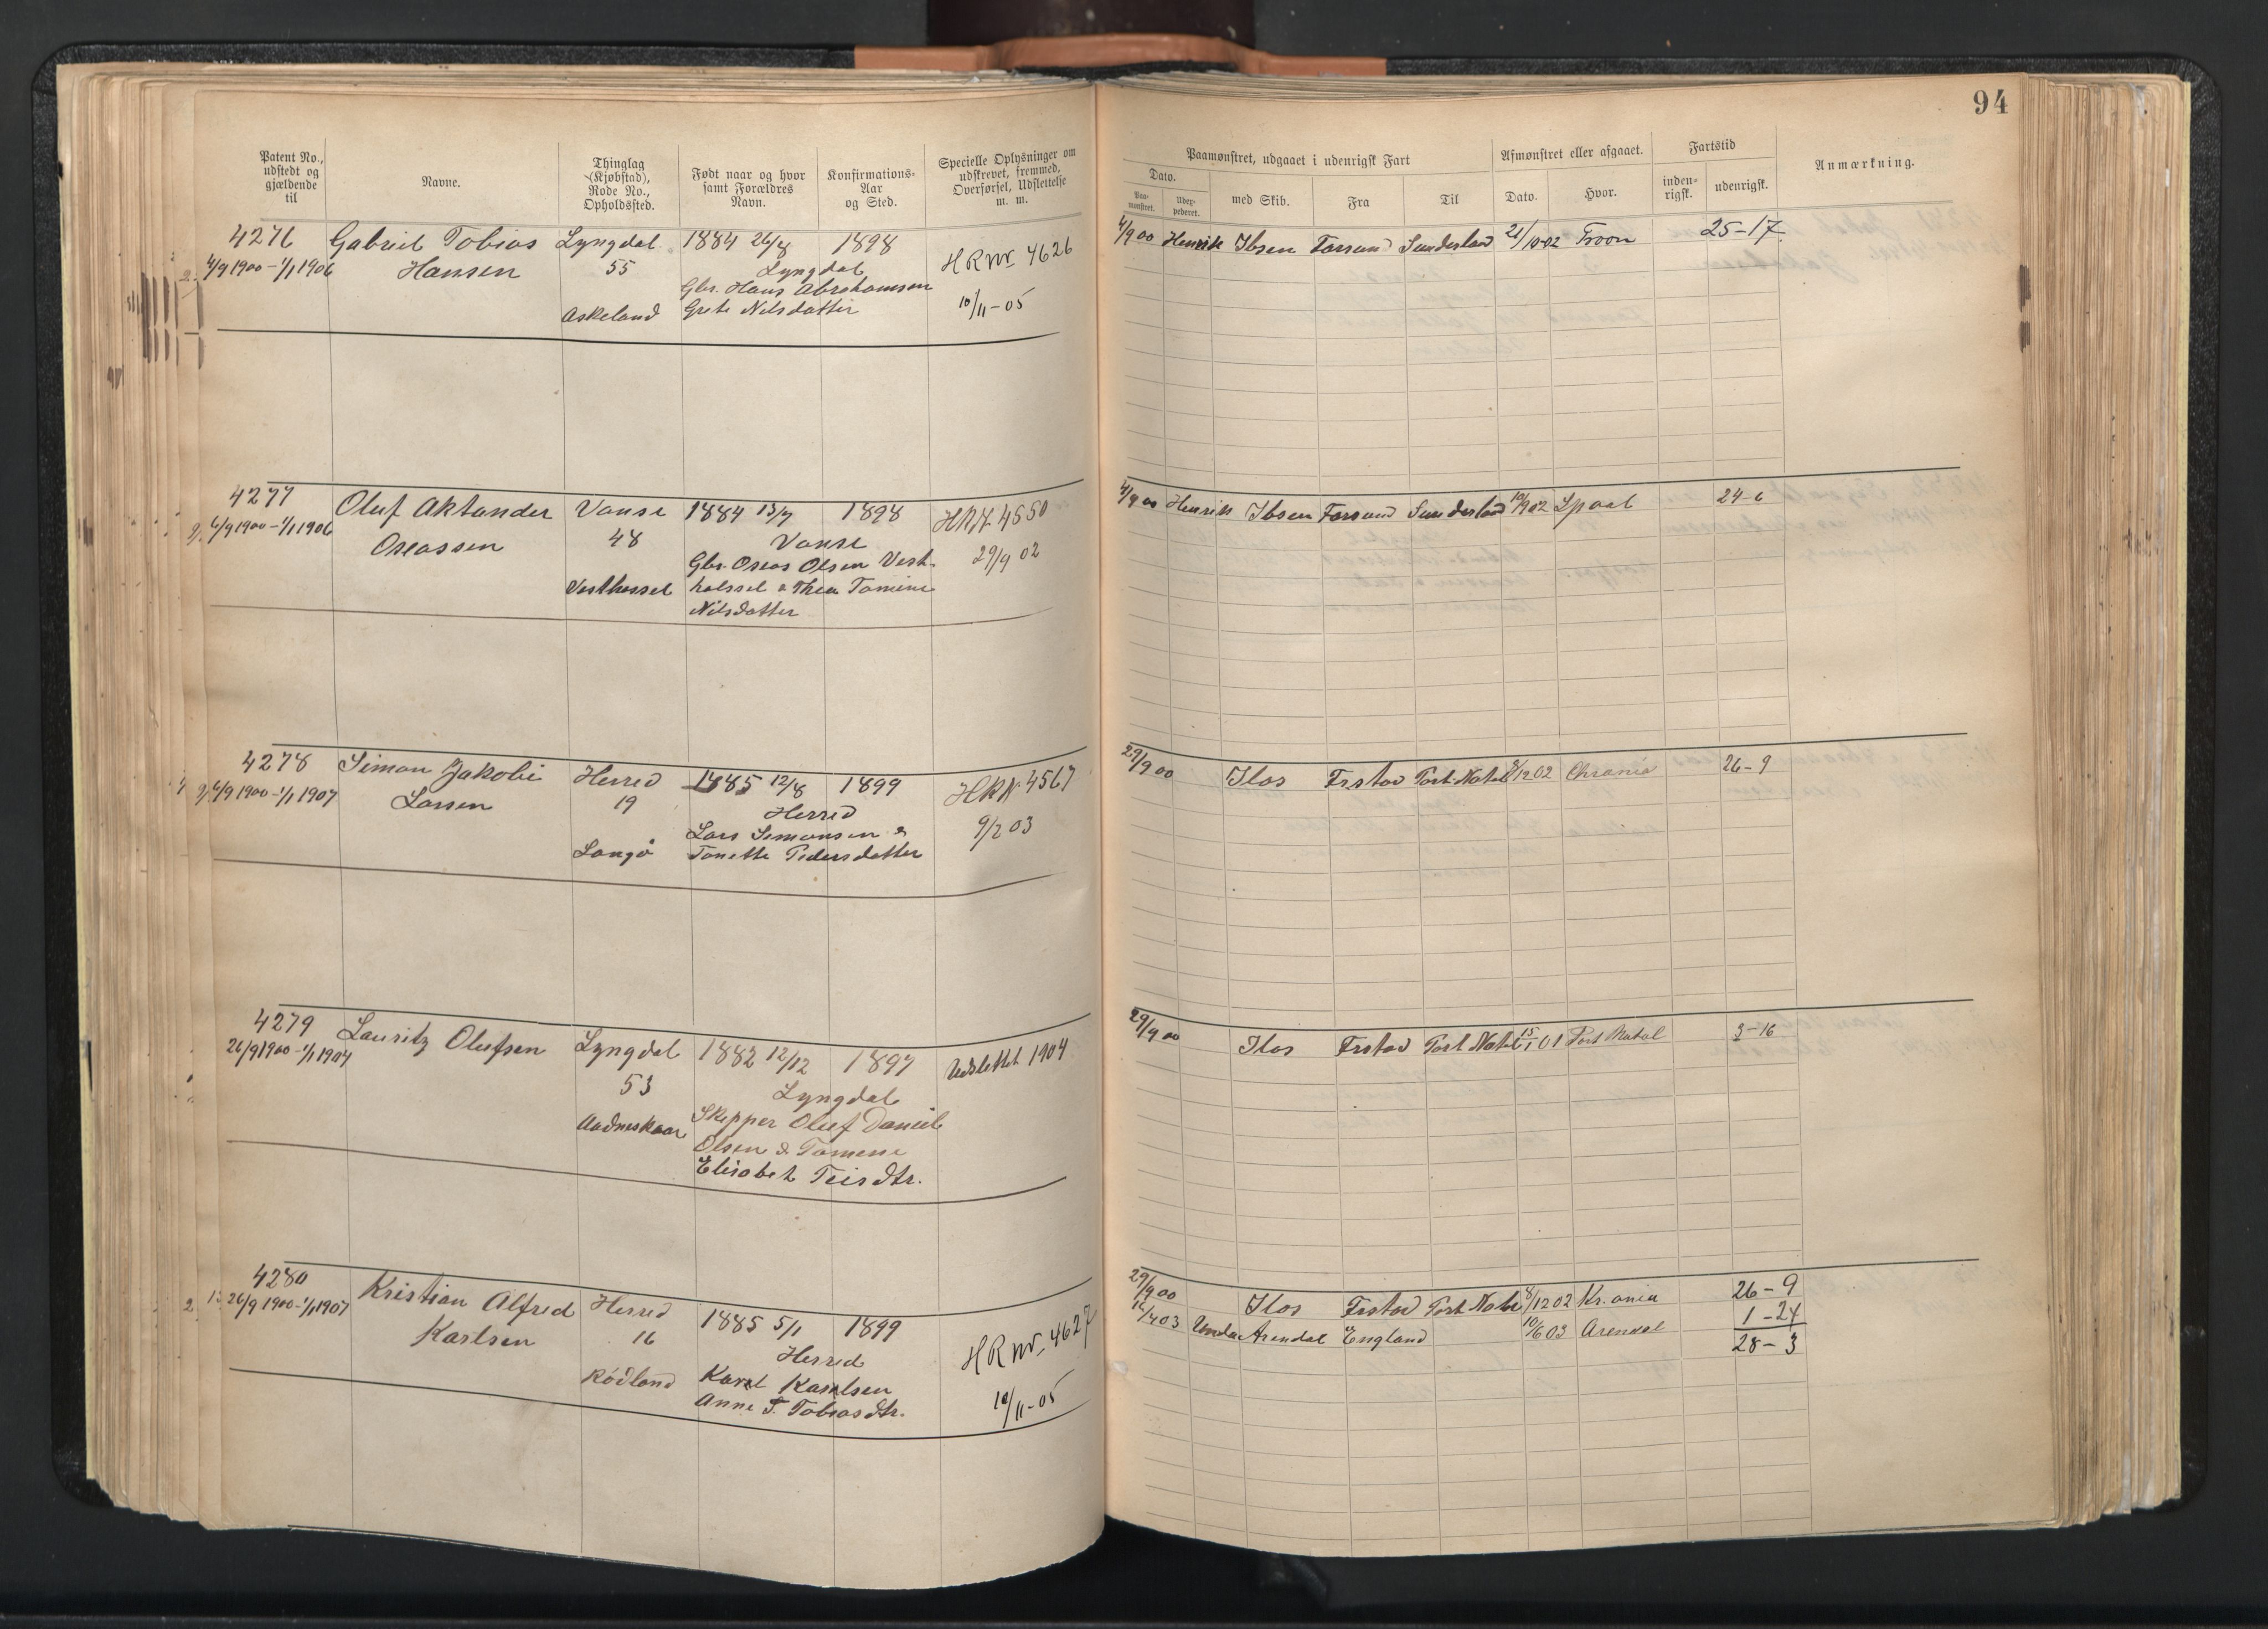 94
Patent No., udstedt og gjældende til
Navne.
Thinglag (Kjøbstad), Rode No., Opholdssted.
Født naar og hvor samt Forældres Navn.
Konfirmations-Aar og Sted.
Specielle Oplysninger om udskrevet, fremmed, Overførsel, Udslettelse m. m.
Paamønstret, udgaaet i udenrigsk Fart
Dato.
Paamønstret.
med Skib.
Fra
Til
Afmønstret eller afgaaet.
Dato.
Hvor.
Fartstid
inden-rigsk.
udenrigsk.
Anmærkning.
4276 Gabriel Tobias Lyngdal 1884 26/8 1898
4/9 1900 - 1/1 1906 Hansen 55 Lyngdal HR Nr. 4626
Gbr. Hans Abrahamsen
Askeland Grete Nilsdatter 10/11-05
4/9 00 Henrik Ibsen Farsund Sunderland 21/10-02 Troon 25-17
4277 Oluf Aktander Vanse 1884 13/7 1898 HRN 4550
6/9 1900 - 1/1 1906 Oseassen 48 Vanse 29/9 02
Gbr. Oseas Olsen Vest-
Vesthassel hassel & Thea Tomine
Nilsdatter
4/9 00 Henrik Ibsen Farsund Sunderland 10/9 02 24-6
4278 Simon Jakobi Herred 1885 12/8 1899 HRN 4567
6/9 1900 - 1/1 1907 Larsen 19 Herred 9/2 03
Lars Simonsen &
Langø Tonette Pedersdatter
29/9 00 Ilos Frstad Port Natal 8/12 02 Chrania 26-9
4279 Lauritz Olufsen Lyngdal 1882 12/12 1897 Udslettet 1904
26/9 1900 - 1/1 1904 53 Lyngdal
Aadneskaar Skipper Oluf Daniel
Olsen & Tomine
Elisabet Teisdtr.
29/9 00 Ilos Frstad Port Natal 15/1 01 Port Natal 3-16
4280 Kristian Alfred Herred 1885 5/1 1899
26/9 1900 - 1/1 1907 Karlsen 16 Herred HR Nr. 4627
Rödland Karl Karlsen
Anne T. Tobiasdtr. 10/11-05
29/9 00 Ilos Frstad Port Natal 8/12 02 Kr.ania 26-9
16/4 03 Unda Arendal England 10/6 03 Arendal 1-24
28-3